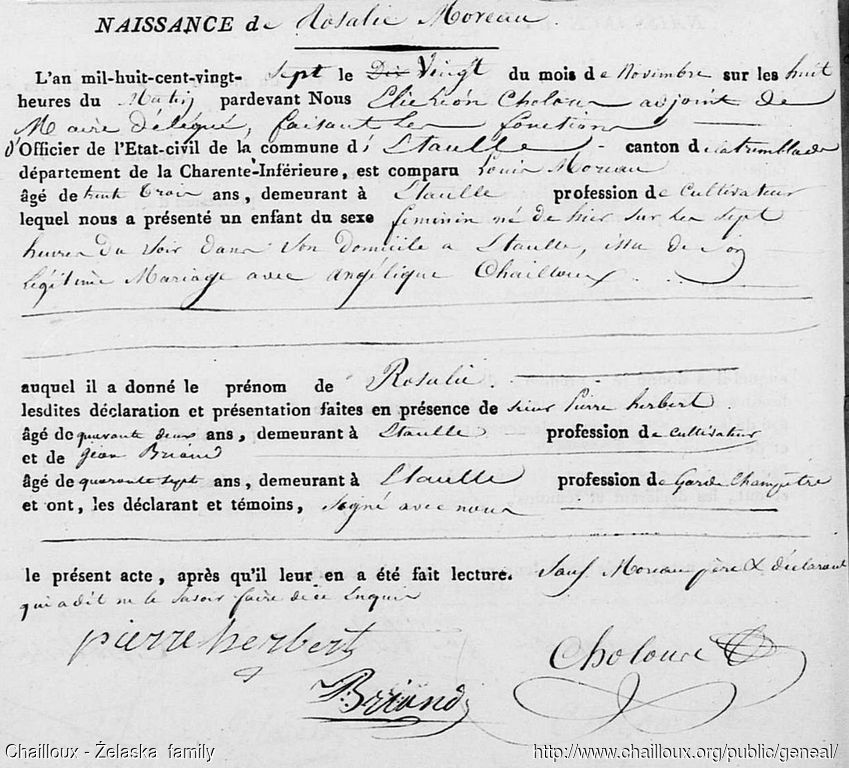 NAISSANCE de Rosalie Moreau.
L'an mil-huit-cent-vingt-sept le Dix Vingt du mois de Novembre sur les huit
heures du Matin pardevant Nous Elie Léon Choloux adjoint de
Maire délégué, faisant les fonctions
d'Officier de l'Etat-civil de la commune d'Etaulle - canton de la tremblade
département de la Charente-Inférieure, est comparu Louis Moreau
âgé de trente trois ans, demeurant à Etaulle profession de Cultivateur
lequel nous a présenté un enfant du sexe feminin né de hier sur les sept
heures du soir dans son domicile a Etaulle, issu de son
légitime Mariage avec angélique Chailloux
auquel il a donné le prénom de Rosalie
lesdites déclaration et présentation faites en présence de sieur Pierre herbert
âgé de quarante deux ans, demeurant à Etaulle profession de cultivateur
et de jean Briand
âgé de quarante sept ans, demeurant à Etaulle profession de Garde Champêtre
et ont, les déclarant et témoins, signé avec nous
le présent acte, après qu'il leur en a été fait lecture. Sauf Moreau père & déclarant
qui a dit ne le savoir faire de ce Enquis
pierre herbert
Choloux
Briand
Chailloux - Żelaska family
http://www.chailloux.org/public/geneal/